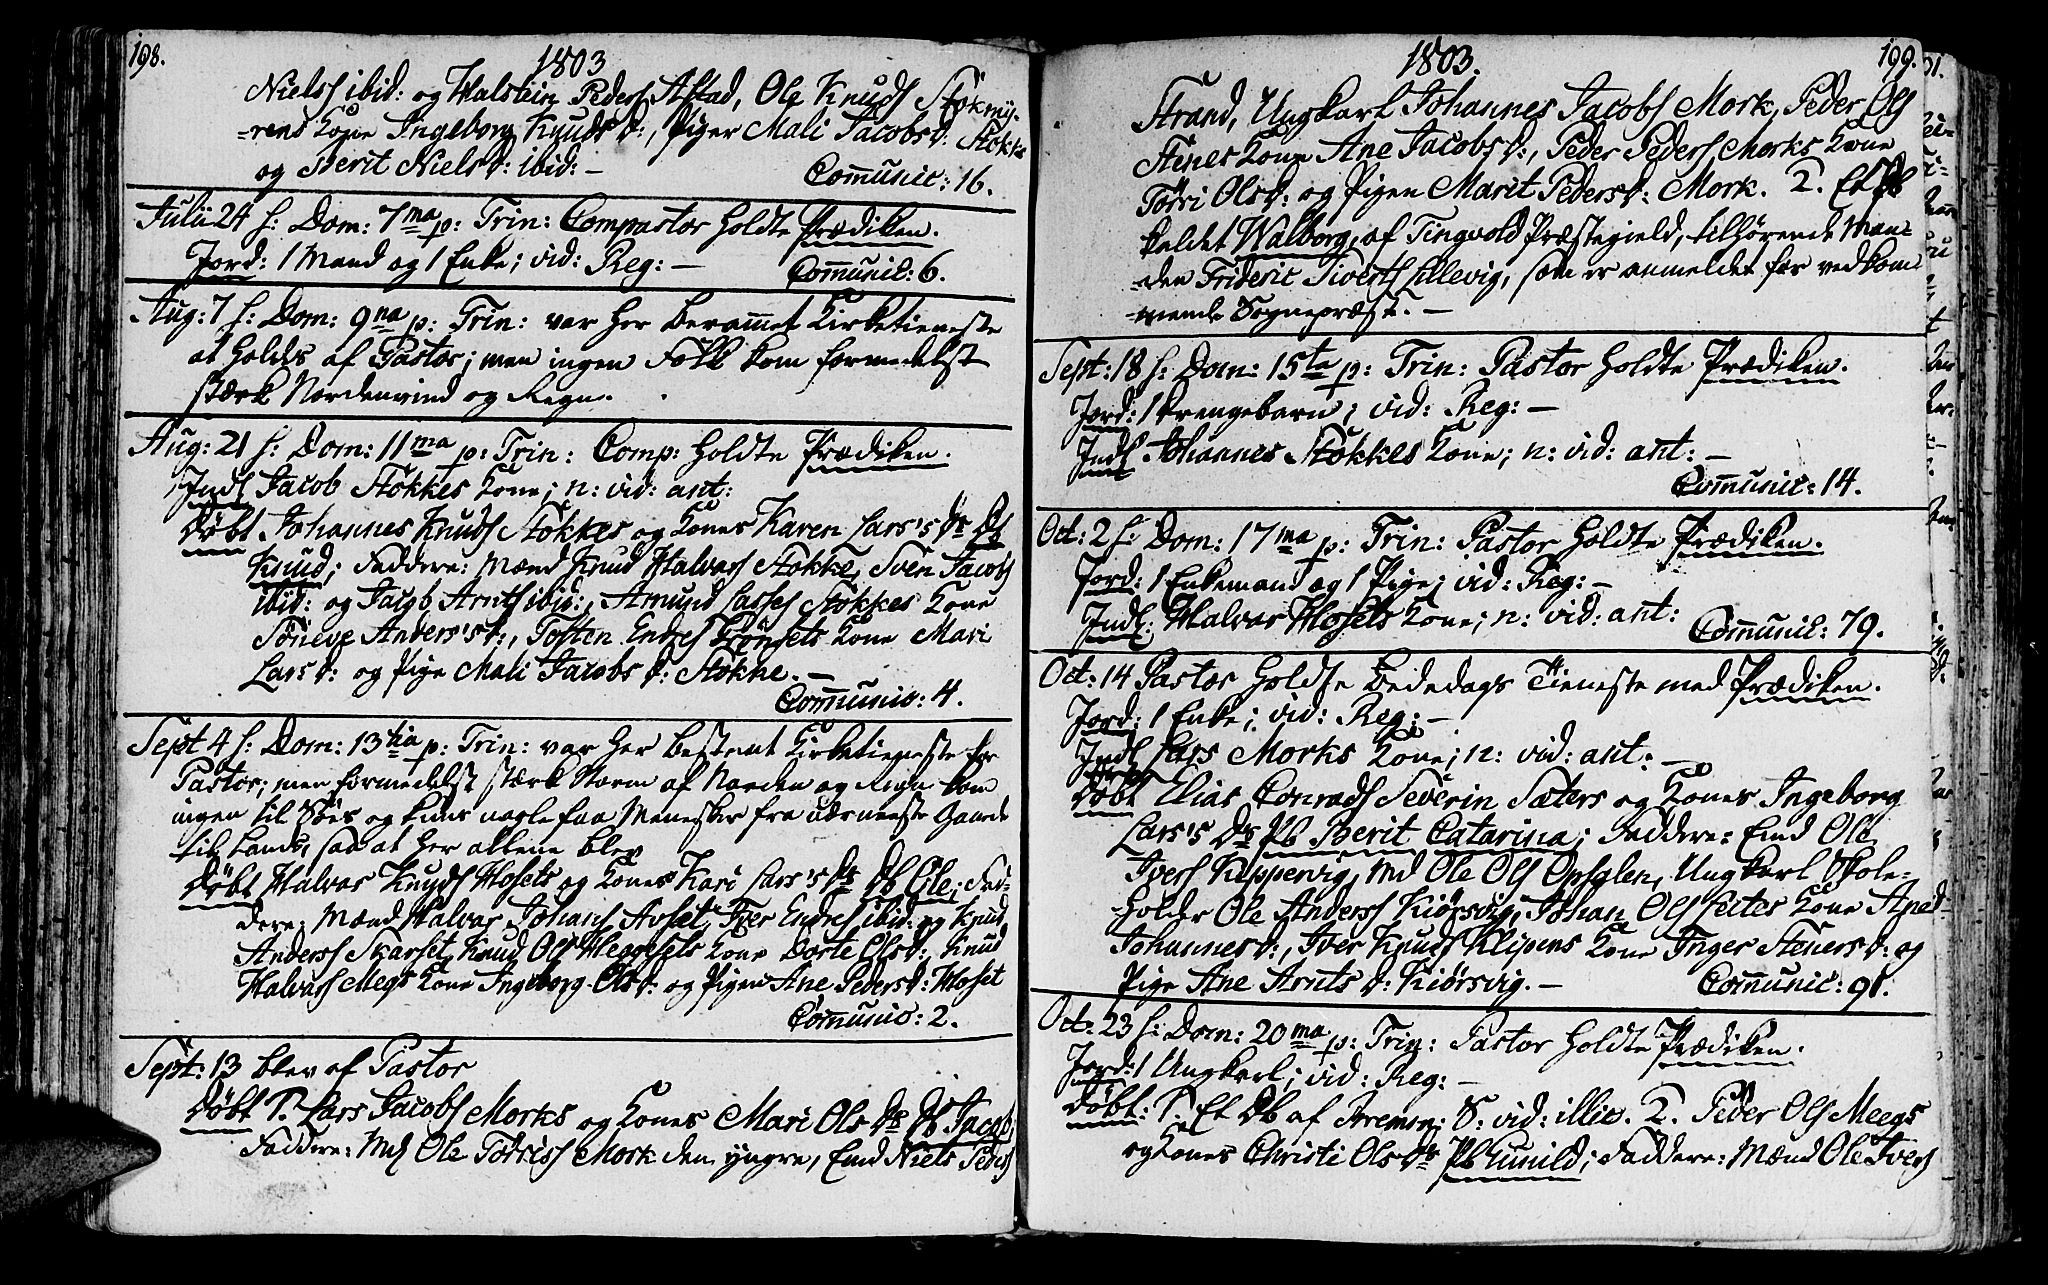 198.
1803
Niels S ibid: og Halstein Peders Alstad, Ole Knuds Stokmy-
-rens Kone Ingeborg Knudsd:, Piger Mali Jacobsd: Stokke
og Berit Nielsd: ibid: —
Communic: 16.
Julii 24 S: Dom: 7ma p: Trin: Compastor holdte Prædiken.
Jord: 1 Mand og 1 Enke; vid: Reg: —
Communic: 6.
Aug: 7 S: Dom: 9na p: Trin: var her beramet Kirketieneste
at holdes af Pastor; men ingen Folk kom formedelst
stærk Nordenvind og Regn.
Aug: 21 S: Dom: 11ma p: Trin: Comp: holdte Prædiken.
Indl Jacob Stokkes Kone; n: vid: ant:
Døbt Johannes Knuds Stokkes og Kones Karen Lars's Ds Db
Knud; Faddere: Mænd Knud Halvars Stokke, Sven Jacobs
ibid: og Jacob Arnts ibid:, Amund Lasses Stokkes Kone
Søneve Anders'sd:, Tosten Endres Trønsets Kone Mari
Larsd: og Pige Mali Jacobsd: Stokke. —
Communic: 4.
Sept 4 S: Dom: 13tia p: Trin: var her bestemt Kirketieneste for
Pastor; men formedelst stærk Storm af Norden og Regn kom
ingen til Søes og kuns nogle faa Mennesker fra nærmeste Gaarde
til Lands, saa at her allene blev
Døbt Halvar Knuds Mosets og Kones Kari Lars's Ds Db Ole; Fad-
dere: Mænd Halvar Johans Avset, Iver Endres ibid: og Knud
Anders Skarset, Knud Ols Meggesets Kone Dorte Olsd:, Knud
Halvars Megs Kone Ingeborg Olsd: og Pigen Ane Pedersd: Moset
Communic: 2.
Sept: 13 blev af Pastor
Døbt 1. Lars Jacobs Morks og Kones Mari Ols Ds Db Jacob;
Faddere: Md Ole Torris Mork den yngre, Emd Niels Peders
199.
1803.
Strand, Ungkarl Johannes Jacobs Mork, Peder Ols
Stenes Kone Ane Jacobsd:, Peder Peders Morks Kone
Torri Olsd: og Pigen Marit Pedersd: Mork. 2. Et Pb
kaldet Walborg, af Tingvold Præstegield, tilhørende Man-
-den Frideric Siverts Lillevig, som er anmeldet for vedkom-
-mende Sognepræst. —
Sept: 18 S: Dom: 15ta p: Trin: Pastor holdte Prædiken.
Jord: 1 Drengebarn; vid: Reg: —
Indl Johannes Stokkes Kone; n: vid: ant: —
Communic: 14.
Oct: 2 S: Dom: 17ma p: Trin: Pastor holdte Prædiken.
Jord: 1 Enkemand og 1 Pige; vid: Reg: —
Indl: Halvar Mosets Kone; n: vid: ant:
Communic: 79.
Oct: 14 Pastor holdte Bededags Tieneste med Prædiken.
Jord: 1 Enke; vid: Reg: —
Indl Lars Morks Kone; n: vid: ant: —
Døbt Elias Conrads Severin Sæters og Kones Ingeborg
Lars's Ds Pb Berit Catarina; Faddere: Emd Ole
Ivers Kippervig, Md Ole Ols Opsalen, Ungkarl Skole-
holder Ole Anders Kiørsvig, Johan Ols Leites Kone Ane
Johannesd:, Iver Knuds Klipens Kone Inger Stenersd: og
Pige Ane Arntsd: Kiørsvig. —
Communic: 91.
Oct: 23 S: Dom: 20ma p: Trin: Pastor holdte Prædiken.
Jord: 1 Ungkarl; vid: Reg: —
Døbt: 1. Et Db af Bremsn: S: vid: illic. 2. Peder Ols Meegs
og Kones Christi Ols Ds Pb Gunild; Faddere: Mænd Ole Ivers